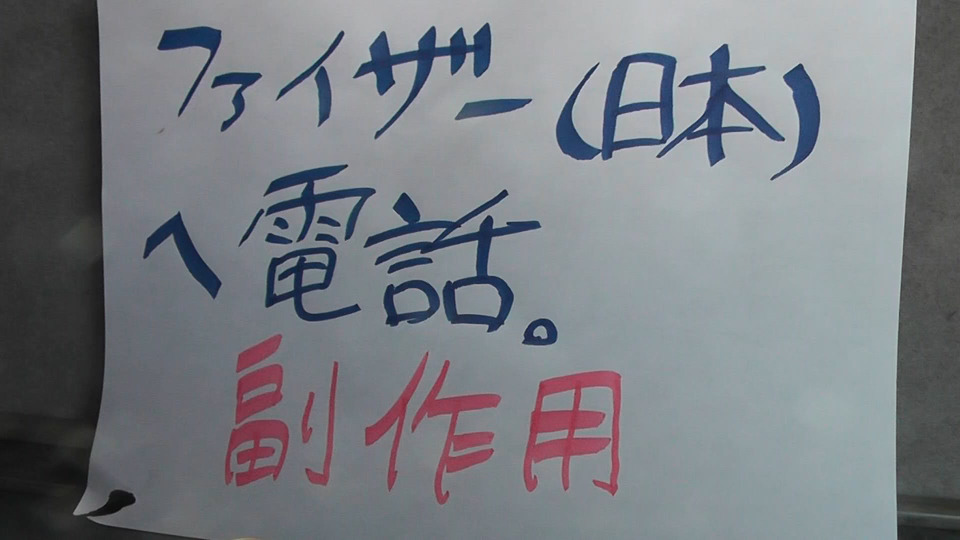 ファイザー(日本)
へ電話。
副作用